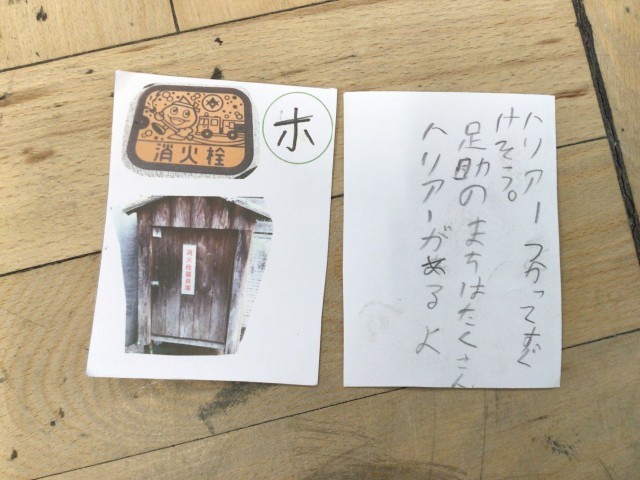 ホ
消火栓
消火栓器具庫
ハリアー つかってすぐ
けそう。
足助の まちはたくさん
ハリアーがあるよ